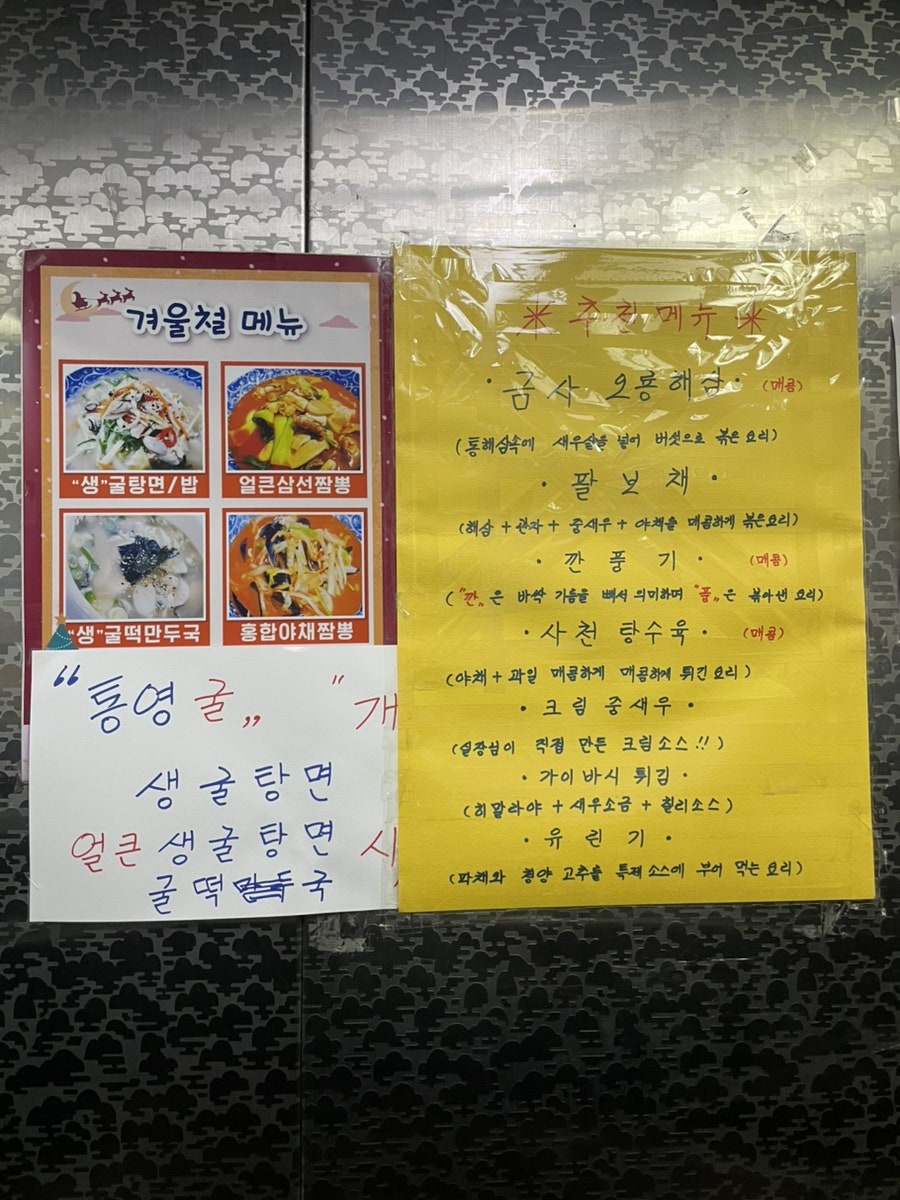 겨울철 메뉴
"생"굴탕면/밥
얼큰삼선짬뽕
"생"굴떡만두국
홍합야채짬뽕
"통영 굴„ "개
생굴탕면
얼큰 생굴탕면 시
굴떡만두국
* 추천메뉴 *
· 금사 오룡해삼 · (매콤)
(통해삼속에 새우살을 넣어 버섯으로 볶은 요리)
· 팔보채 ·
(해삼 + 관자 + 중새우 + 야채를 매콤하게 볶은요리)
· 깐풍기 · (매콤)
("깐„은 바싹 기름을 빼서 의미하며 "풍„은 볶아낸 요리)
· 사천 탕수육 · (매콤)
(야채 + 과일 매콤하게 매콤하게 튀긴 요리)
· 크림 중새우 ·
(실장님이 직접 만든 크림소스!!)
· 가이바시 튀김 ·
(히말라야 + 새우소금 + 칠리소스)
· 유린기 ·
(파채와 청양 고추를 특제 소스에 부어 먹는 요리)